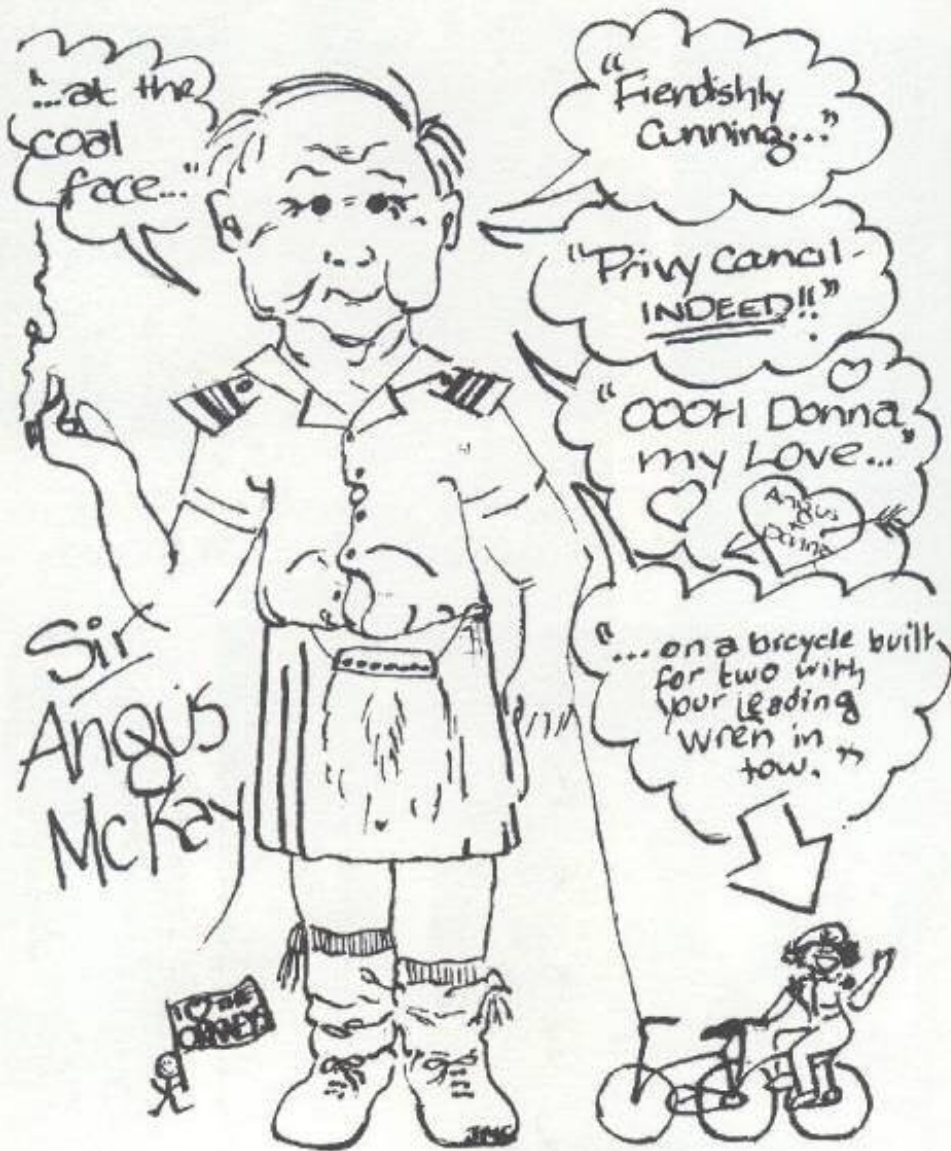 "...at the
coal
face..."
"Fiendishly
Cunning..."
"Privy Council -
INDEED!!"
"OOOH Donna
my Love..."
Angus
+
Donna
"... on a bicycle built
for two with
your leading
Wren in
tow."
Sir
Angus
McKay
I ♡ THE
JMC